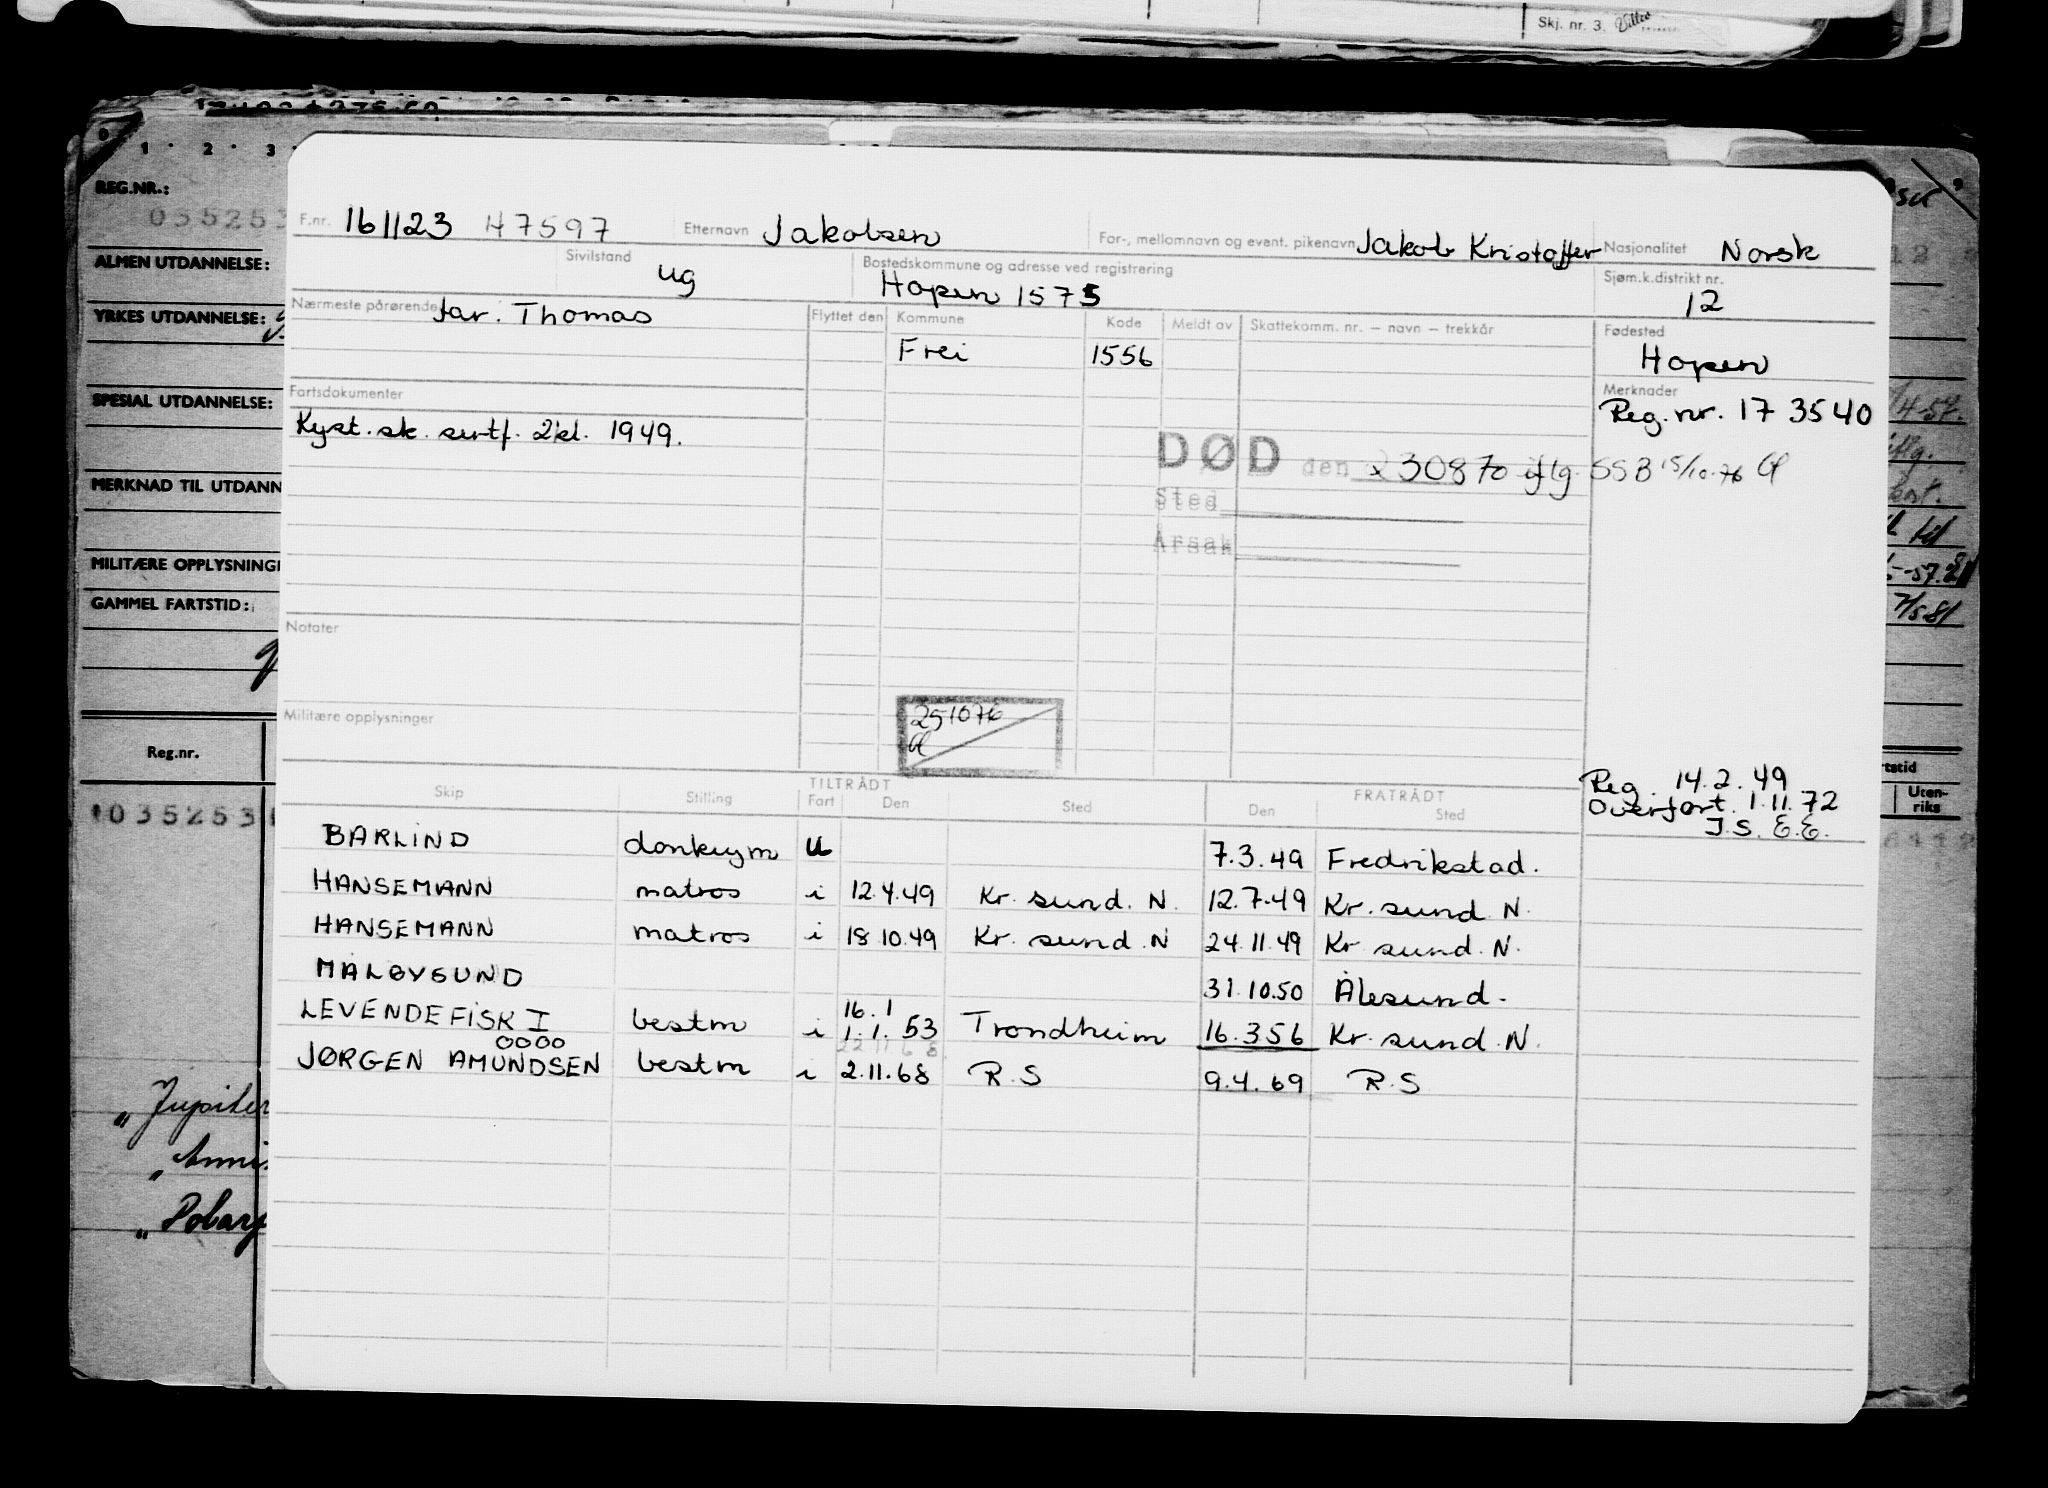 Skj. nr. 3.
0 1 2 3
REG.NR.:
035253
ALMEN UTDANNELSE:
YRKES UTDANNELSE:
SPESIAL UTDANNELSE:
MERKNAD TIL UTDANN
MILITÆRE OPPLYSNING
GAMMEL FARTSTID:
Reg.nr.
035253
"Jupiter
F.nr. 161123 47597 Etternavn Jakobsen For-, mellomnavn og event. pikenavn Jakob Kristoffer Nasjonalitet Norsk
Sivilstand ug Bostedskommune og adresse ved registrering Hopen 1575 Sjøm.k.distrikt nr. 12
Nærmeste pårørende far. Thomas Flyttet den Kommune Kode Meldt av Skattekomm. nr. – navn – trekkår Fødested
Frei 1556 Hopen
Fartsdokumenter Merknader
Kyst. sk. sertf. 2kl. 1949. Reg. nr. 17 3540
DØD den 230870 iflg. SSB 15/10-76
Sted
Årsak
Notater
Militære opplysninger
251076
Reg. 14.2.49
Overført. 1.11.72
J.S. E.E.
TILTRÅDT FRATRÅDT
Skip Stilling Fart Den Sted Den Sted
BARLIND donkeym u 7.3.49 Fredrikstad.
HANSEMANN matros i 12.4.49 Kr. sund. N. 12.7.49 Kr. sund N.
HANSEMANN matros i 18.10.49 Kr. sund. N 24.11.49 Kr sund. N.
MÅLØYSUND 31.10.50 Ålesund.
16.1
LEVENDEFISK I bestm i 1.1.53 Trondheim 16.356 Kr. sund. N.
0000
JØRGEN AMUNDSEN bestm i 2.11.68 R.S 9.4.69 R.S
4-57.
iflg.
-57.
7/5 81
rtstid
Uten-
riks